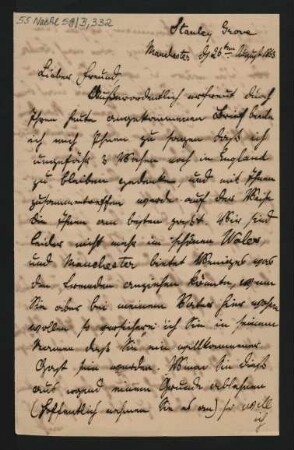 55 Nachl 59/B,332
Stanley Grove
Manchester d 26ten August 1883
Lieber Freund,
Außerordentlich erfreut durch
Ihren heute angekommenen Brief beeile
ich mich Ihnen zu sagen daß ich
ungefähr 3 Wochen noch in England
zu bleiben gedenke, und mit Ihnen
zusammentreffen werde auf der Weise
die Ihnen am besten paßt. Wir sind
leider nicht mehr im schönen Wales
und Manchester bietet Weniges was
den Fremden anziehen könnte, wenn
Sie aber bei meinem Vater hier wohnen
wollen so versichere ich Sie in seinem
Namen daß Sie ein willkommener
Gast sein würden. Wenn Sie dieß
aus irgend einem Grunde ablehnen
(hoffentlich nehmen Sie es an) so will
ich